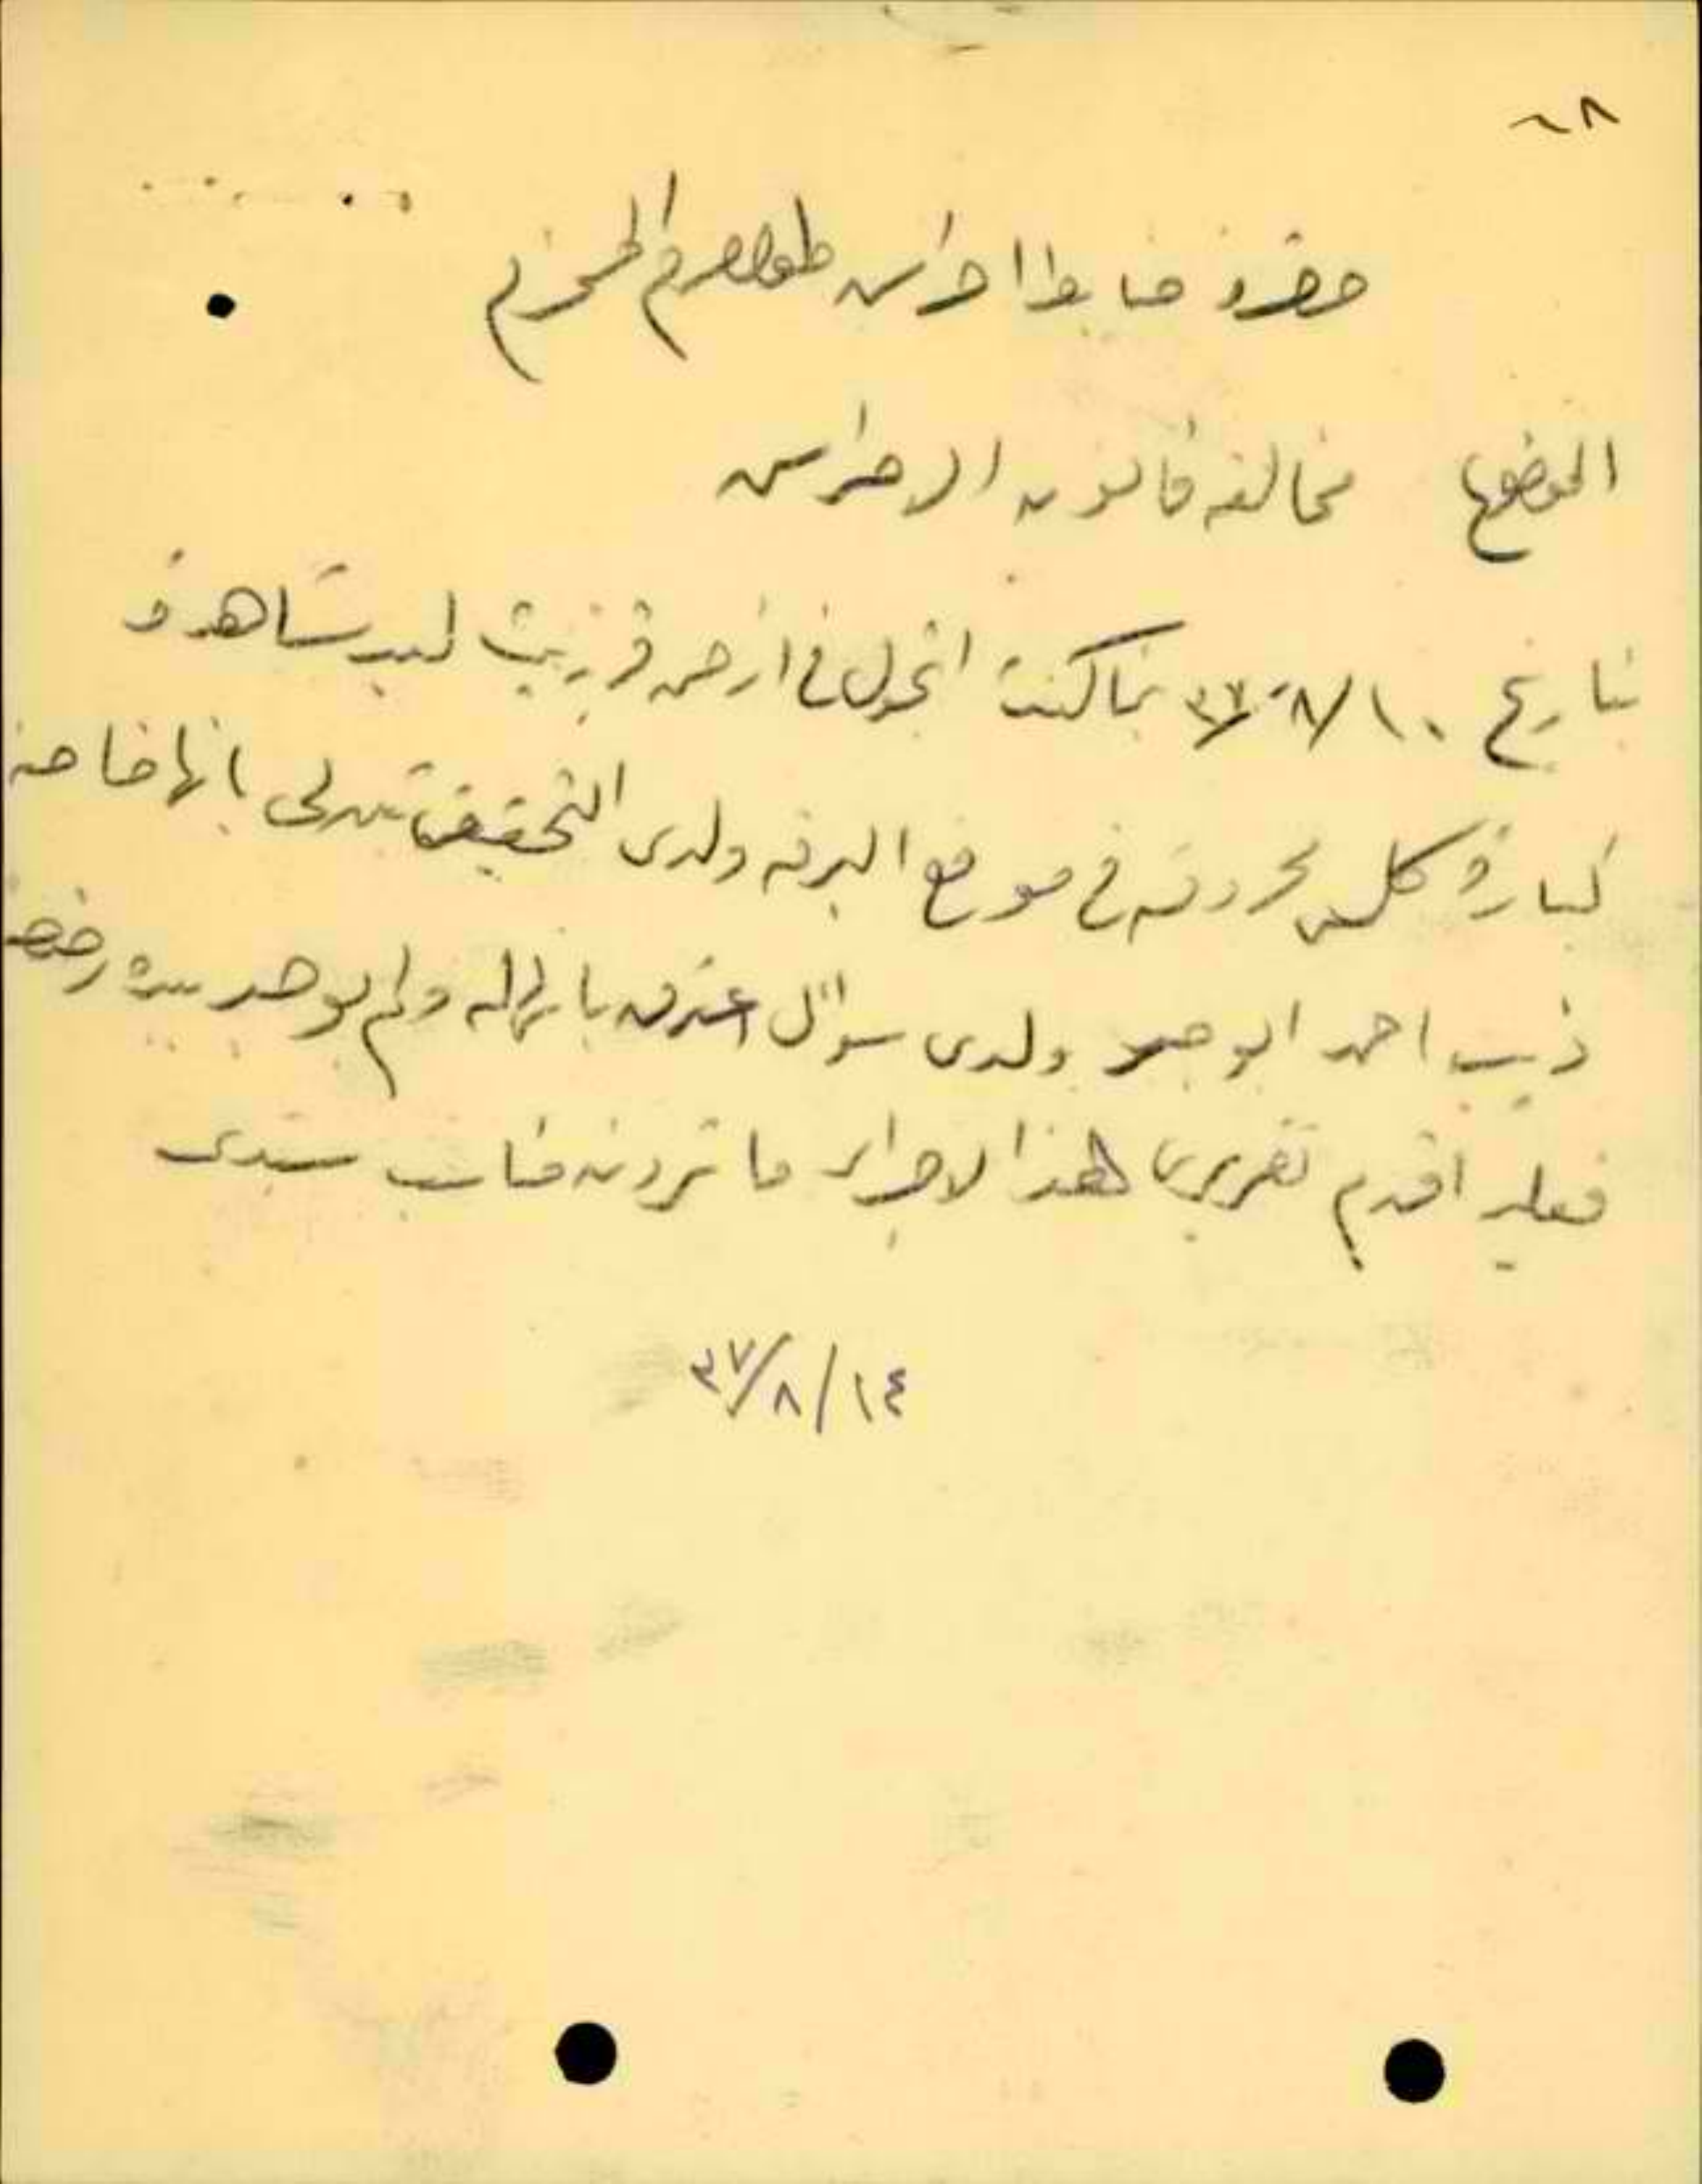 ٦٨
حضرة ضابط احراش طولكرم المحترم
الموضوع مخالفة قانون الاحراش
بتاريخ ١٠/٨/٣٧ بينما كنت اتجول في ارض قرية زيتا لقد شاهدة
كبارة كلس محروقه في موقع البرفه ولدى التحقيق تبين لي بانها خاصة
ذيب احمد ابو ولدى سوآل اعترف بانها له ولم يوجد بيده رخصة
فعليه اقدم تقريري لهذا لاجراء ما ترونه مناسب سيدى
١٤/٨/٣٧